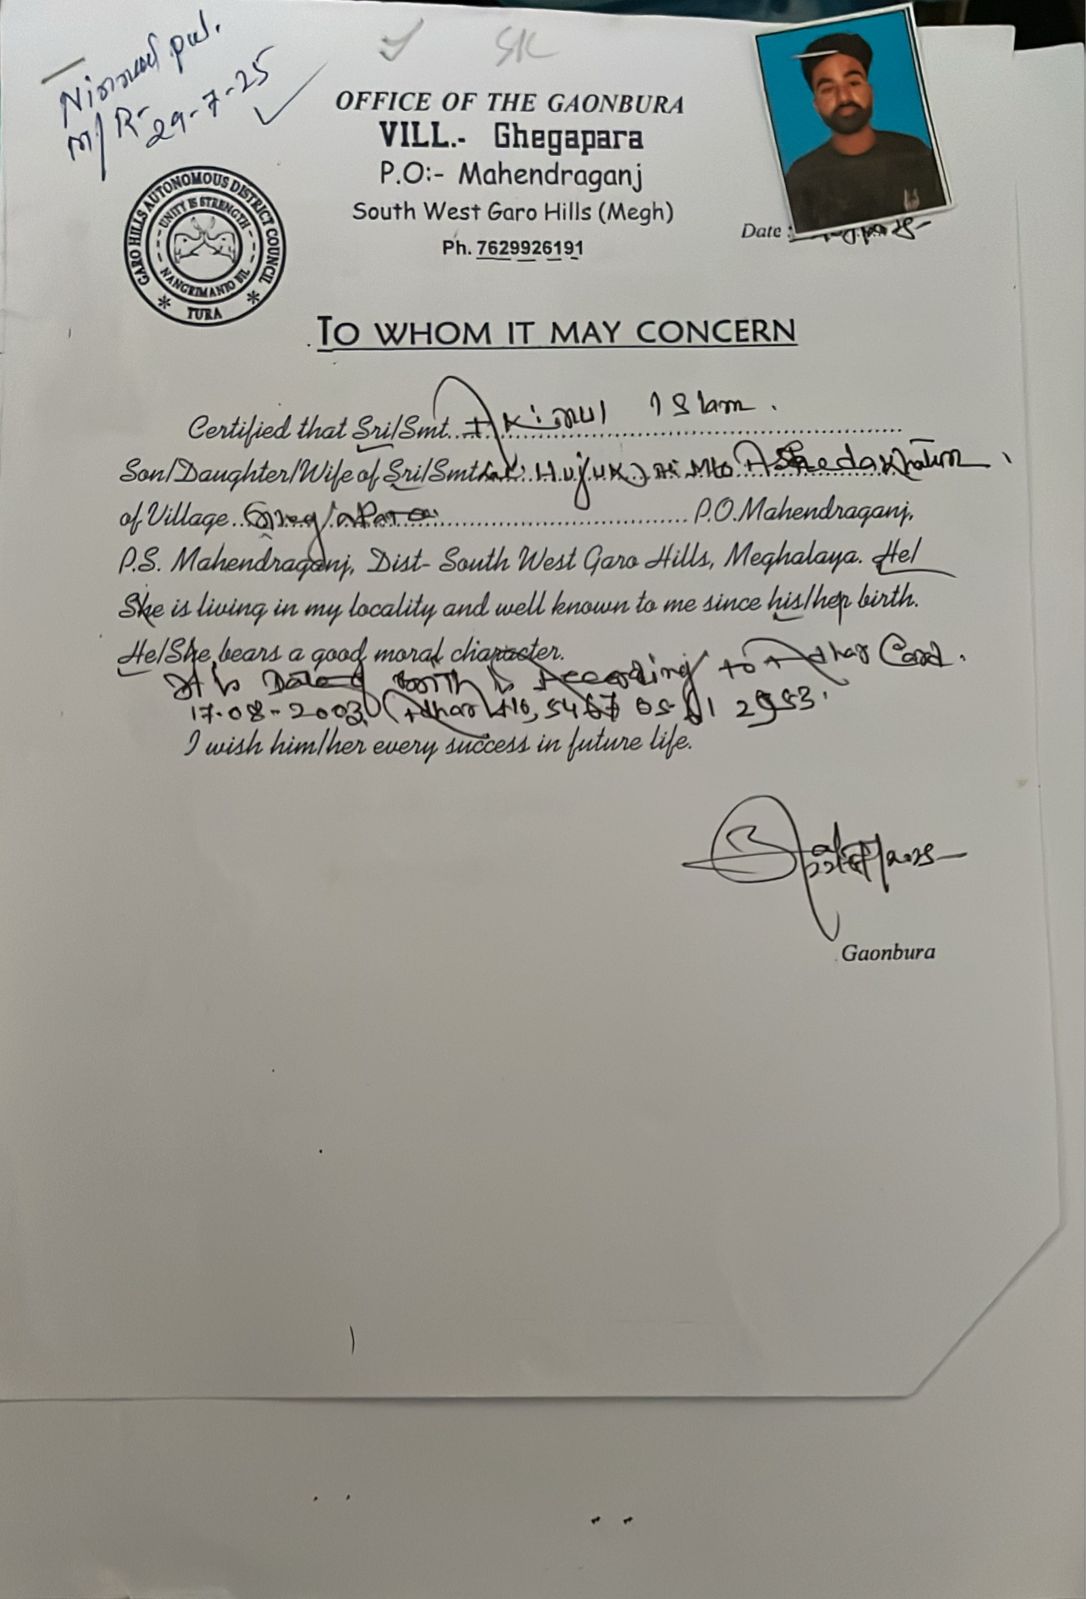 Nirmal pal.
M/R-
29-7-25
SK
OFFICE OF THE GAONBURA
VILL.- Ghegapara
P.O:- Mahendraganj
South West Garo Hills (Megh)
Ph. 7629926191
Date :
GARO HILLS AUTONOMOUS DISTRICT COUNCIL
UNITY IS STRENGTH
TURA
TO WHOM IT MAY CONCERN
Certified that Sri/Smt. Akimul Islam.
Son/Daughter/Wife of Sri/Smt M/o Asheda Khatun
of Village P.O. Mahendraganj,
P.S. Mahendraganj, Dist- South West Garo Hills, Meghalaya. He/
She is living in my locality and well known to me since his/her birth.
He/She bears a good moral character.
Date of birth is According to Adhar Card.
17-08-2003 (Adhar
I wish him/her every success in future life.
Gaonbura